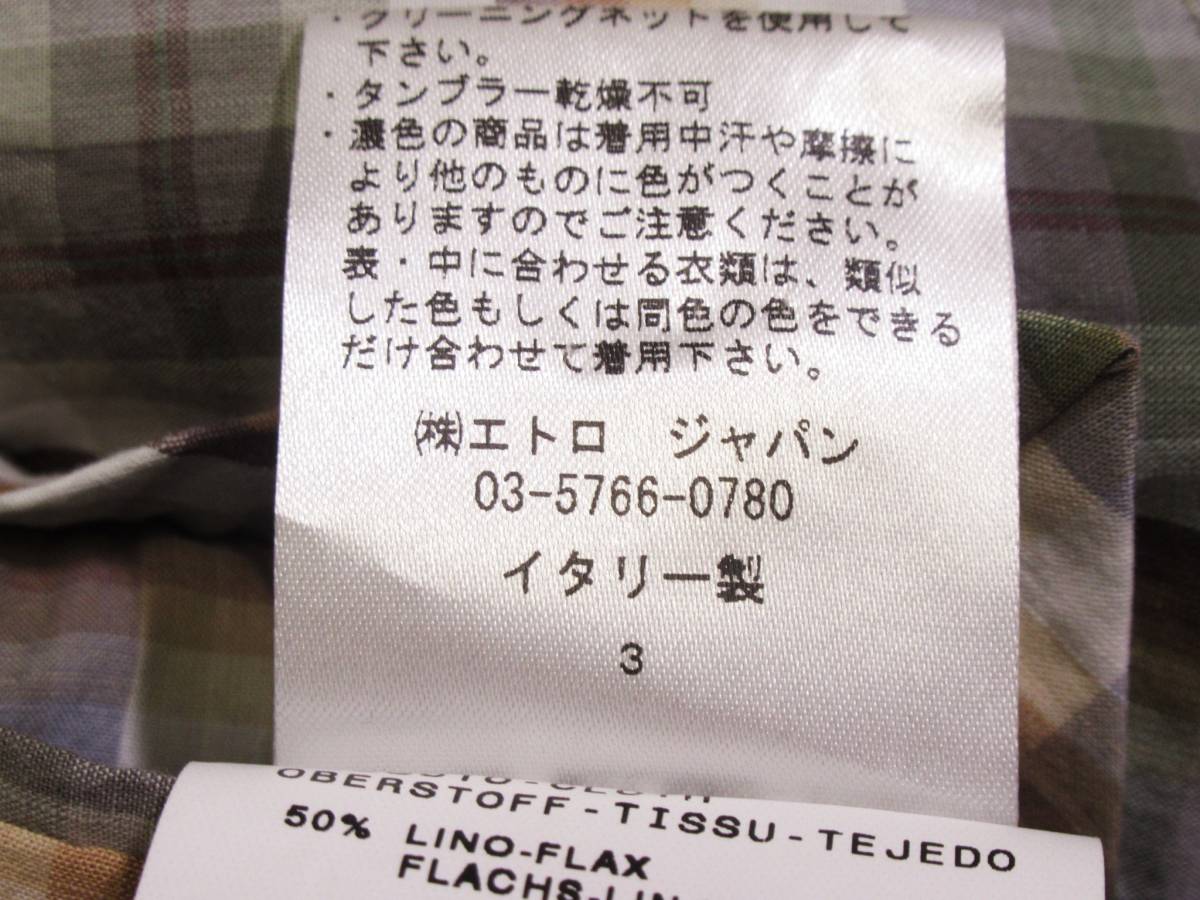 ・クリーニングネットを使用して
下さい。
・タンブラー乾燥不可
・濃色の商品は着用中汗や摩擦に
より他のものに色がつくことが
ありますのでご注意ください。
表・中に合わせる衣類は、類似
した色もしくは同色の色をできる
だけ合わせて着用下さい。
㈱エトロ ジャパン
03-5766-0780
イタリー製
3
OBERSTOFF-TISSU-TEJEDO
50% LINO-FLAX
FLACHS-LIN